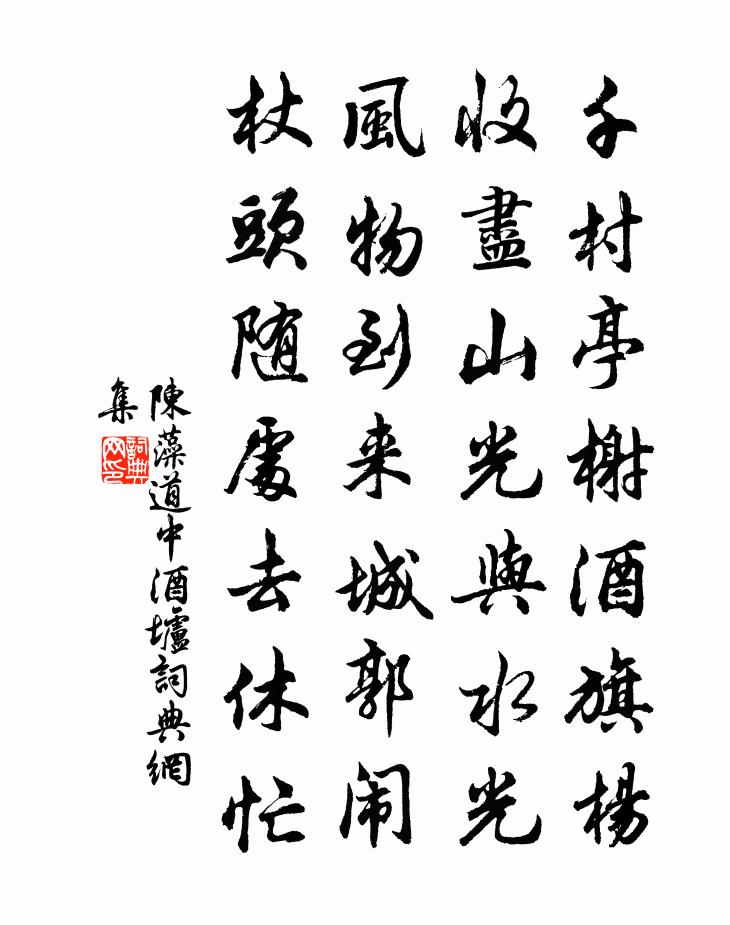 千村亭榭酒旗楊
收盡山光與水光
風物到来城郭闹
杖頭随處去休忙
陳藻道中酒壚詞典網
集
詞典
网印